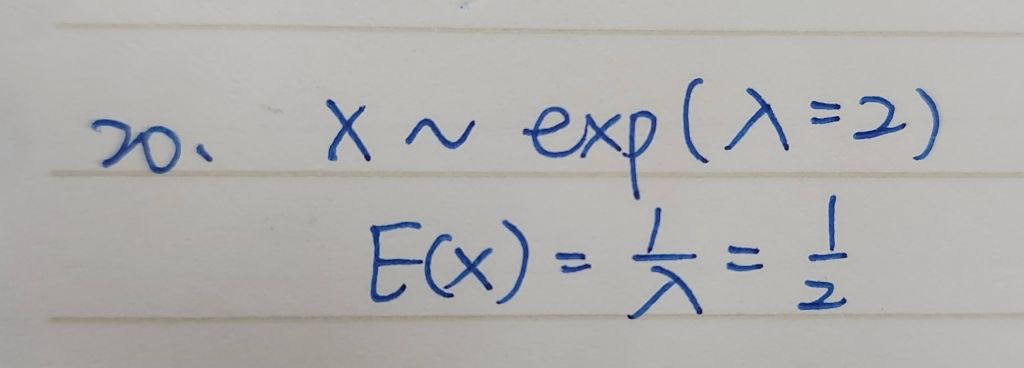 20. X ~ exp(λ=2)
E(x) = 1/λ = 1/2